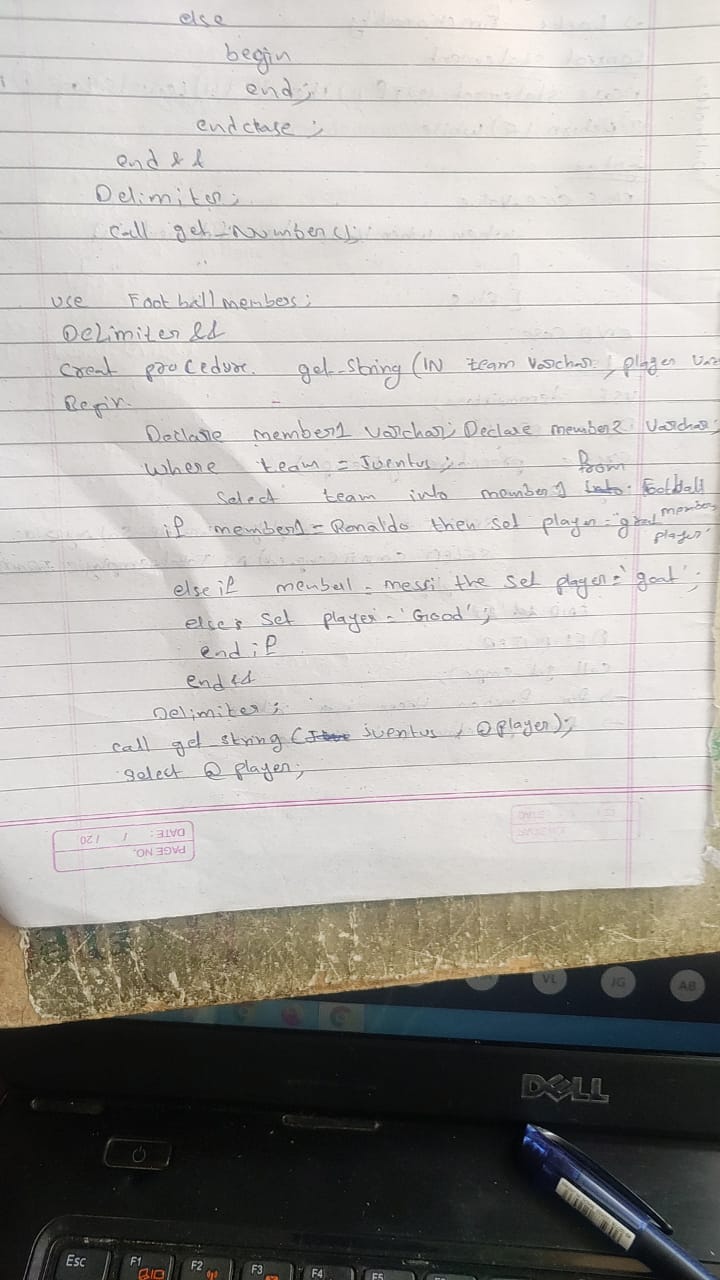 else
begin
end;
end case;
end &&
Delimiter;
call get_Number();
use Football members;
Delimiter &&
Creat procedure get_string (IN team varchar, player var
Begin
Declare member1 varchar; Declare member2 varchar;
where team = Juentus;
from
Select team into member1 Football
member
if member1 = Ronaldo then set player =
player'
else if = messi the set player = 'goat';
else; set player = 'Good';
end if
end &&
Delimiter;
call get string ( juentus , @player);
select @ player;
DATE: / /20
PAGE NO.
VL
JG
AB
DELL
Esc
F1
F2
F3
F4
F5